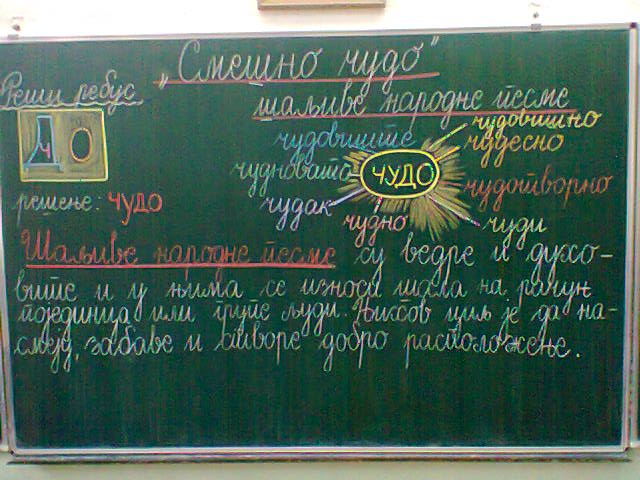 „Смешно чудо“
Реши ребус
шаљиве народне песме
Д ч О
решење: чудо
чудовишно
чудовиште
чудесно
чудновата
ЧУДО
чудотворно
чудак
чудно
чуди
Шаљиве народне песме су ведре и духо-
вите и у њима се износи шала на рачун
појединца или групе људи. Њихов циљ је да на-
смеју, забаве и створе добро расположење.